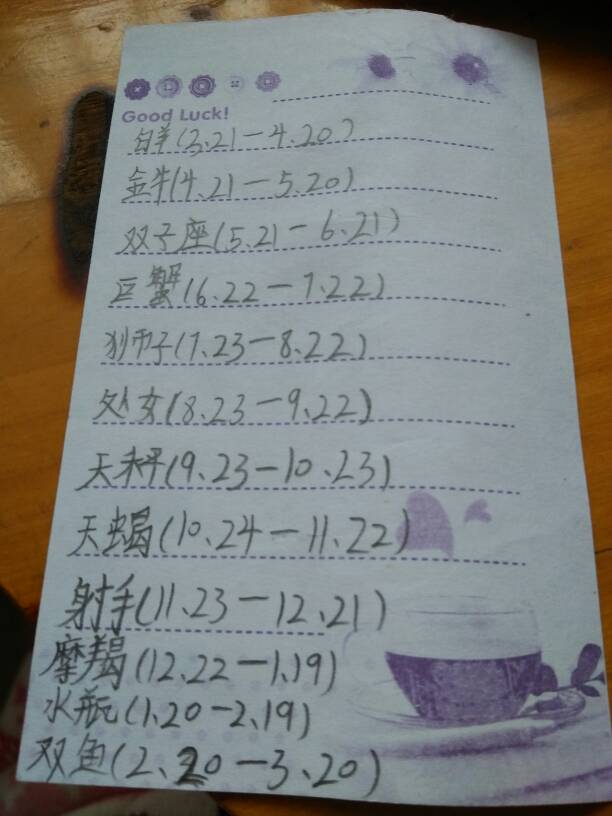 Good Luck!
白羊(3.21—4.20)
金牛(4.21—5.20)
双子座(5.21—6.21)
巨蟹(6.22—7.22)
狮子(7.23—8.22)
处女(8.23—9.22)
天秤(9.23—10.23)
天蝎(10.24—11.22)
射手(11.23—12.21)
摩羯(12.22—1.19)
水瓶(1.20-2.19)
双鱼(2.20—3.20)